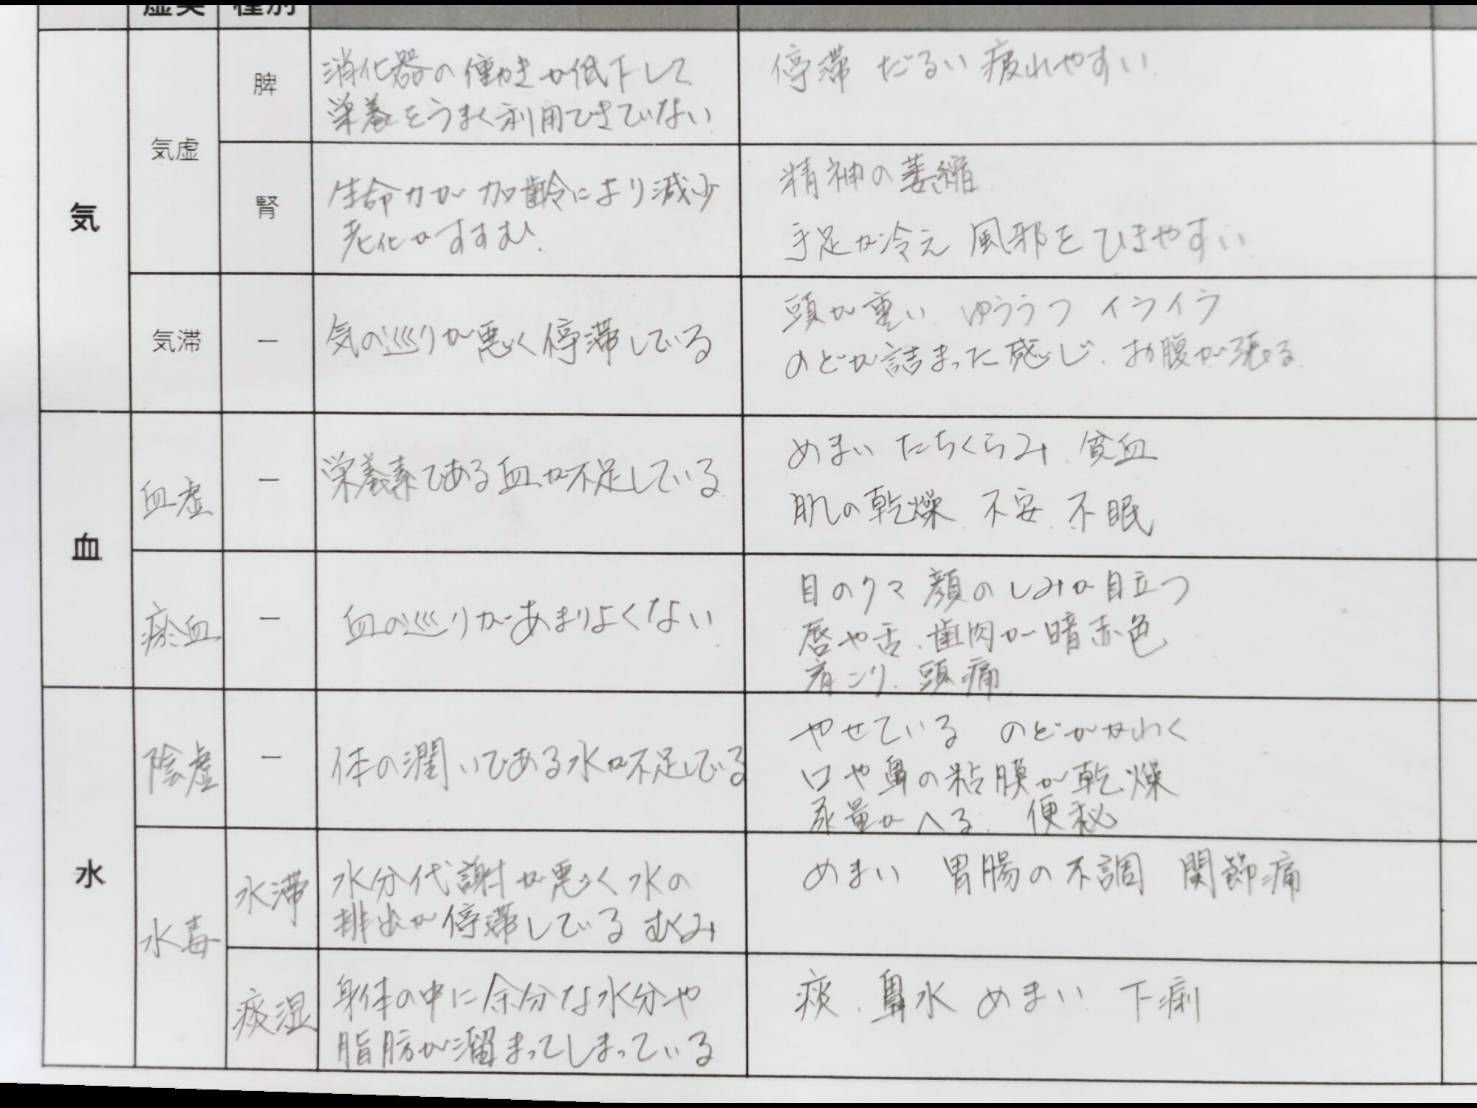 虚実 種別
気
気虚
脾
消化器の働きが低下して
栄養をうまく利用できていない
停滞 だるい 疲れやすい
腎
生命力が加齢により減少
老化がすすむ
精神の萎縮
手足が冷え 風邪をひきやすい
気滞
ー
気の巡りが悪く停滞している
頭が重い ゆううつ イライラ
のどが詰まった感じ、お腹が張る
血
血虚
ー
栄養素である血が不足している
めまい たちくらみ 貧血
肌の乾燥 不安 不眠
瘀血
ー
血の巡りがあまりよくない
目のクマ 顔のしみが目立つ
唇や舌、歯肉が暗赤色
肩こり、頭痛
水
陰虚
ー
体の潤いである水が不足している
やせている のどがかわく
口や鼻の粘膜が乾燥
尿量がへる、便秘
水毒
水滞
水分代謝が悪く水の
排出が停滞している むくみ
めまい 胃腸の不調 関節痛
痰湿
身体の中に余分な水分や
脂肪が溜まってしまっている
痰、鼻水 めまい 下痢